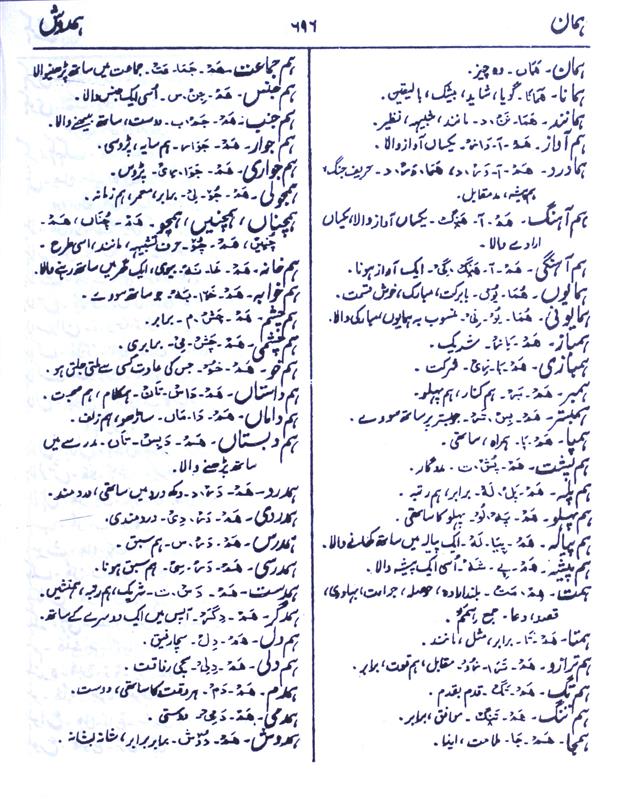 ہمان
۶۹۶
ہمدوش
ہمان۔ هَمَاں۔ وہ چیز۔
ہمانا۔ هَمَانَا۔ گویا، شاید، بیشک، بالیقین۔
ہمانند۔ هَمَا۔ نَنْ۔ د۔ مانند، شبیہہ، نظیر۔
ہم آواز۔ هَمْ۔ آ۔ وَازْ۔ یکساں آواز والا۔
ہماورد۔ هَمْ۔ آ۔ وَرْ۔ د، هَمَا۔ وَرْ۔ د۔ حریف جنگ،
ہم پیشہ، مدمقابل۔
ہم آہنگ۔ هَمْ۔ آ۔ هَنْگ۔ یکساں آواز والا، یکساں
ارادے والا۔
ہم آہنگی۔ هَمْ۔ آ۔ هَنْگ۔ گِیْ۔ ایک آواز ہونا۔
ہمایوں۔ هُمَا۔ یُوْں۔ بابرکت، مبارک، خوش قسمت۔
ہمایونی۔ هُمَا۔ یُوْ۔ نِیْ۔ منسوب بہ ہمایوں، مبارکی والا۔
ہمباز۔ هَمْ۔ بَازْ۔ شریک۔
ہمبازی۔ هَمْ۔ بَا۔ زِیْ۔ شرکت۔
ہمبر۔ هَمْ۔ بَرْ۔ ہم کنار، ہم پہلو۔
ہمبستر۔ هَمْ۔ بِسْ۔ تَرْ۔ جو بستر پر ساتھ سووے۔
ہمپا۔ هَمْ۔ پَا۔ ہمراہ، ساتھی۔
ہم پشت۔ هَمْ۔ پُشْ۔ ت۔ مددگار۔
ہم پلہ۔ هَمْ۔ پَلْ۔ لَهْ۔ برابر، ہم رتبہ۔
ہم پہلو۔ هَمْ۔ پَهْ۔ لُوْ۔ پہلو کا ساتھی۔
ہم پیالہ۔ هَمْ۔ پِیَا۔ لَهْ۔ ایک پیالہ میں ساتھ کھانے والا۔
ہم پیشہ۔ هَمْ۔ پے۔ شَهْ۔ اُسی ایک پیشہ والا۔
ہمت۔ هِمْ۔ مَتْ۔ بلند ارادہ، حوصلہ، جراءت، بہادری،
قصد، دعا۔ جمع ہِمَم۔
ہمتا۔ هَمْ۔ تَا۔ برابر، مثل، مانند۔
ہم ترازو۔ هَمْ۔ تَرَا۔ زُوْ۔ مقابل، ہم قوت، برابر۔
ہم تگ۔ هَمْ۔ تَگْ۔ قدم بقدم۔
ہم تنگ۔ هَمْ۔ تَنْگ۔ موافق، برابر۔
ہمچا۔ هَمْ۔ جَا۔
ہم جماعت۔ هَمْ۔ جَمَا۔ عَتْ۔ جماعت میں ساتھ پڑھنے والا
ہم جنس۔ هَمْ۔ جِنْ۔ س۔ اُسی ایک جنس والا۔
ہم جنب۔ هَمْ۔ جَنْ۔ ب۔ دوست، ساتھ بیٹھنے والا۔
ہم جوار۔ هَمْ۔ جَوَارْ۔ ہم سایہ، پڑوسی۔
ہم جواری۔ هَمْ۔ جَوَا۔ رِیْ۔ پڑوس۔
ہمجولی۔ هَمْ۔ جُوْ۔ لِیْ۔ برابر، ہمعمر، ہم زمانہ۔
ہمچناں، ہمچنیں، ہمچو۔ هَمْ۔ چُنَاں، هَمْ۔
چُنِیْں، هَمْ۔ چُوْ۔ حرف تشبیہہ، مانند، اسی طرح۔
ہم خانہ۔ هَمْ۔ خَا۔ نَهْ۔ بیوی، ایک گھر میں ساتھ رہنے والا۔
ہم خوابہ۔ هَمْ۔ خَوَا۔ بَهْ۔ جو ساتھ سووے۔
ہم چشم۔ هَمْ۔ چَشْ۔ م۔ برابر۔
ہم چشمی۔ هَمْ۔ چَشْ۔ مِیْ۔ برابری۔
ہم خو۔ هَمْ۔ خُوْ۔ جس کی عادت کسی سے ملتی جلتی ہو۔
ہم داستاں۔ هَمْ۔ دَاسْ۔ تَاں۔ ہمکلام، ہم صحبت۔
ہم داماں۔ هَمْ۔ دَا۔ مَاں۔ ساڑھو، ہم زلف۔
ہم دبستاں۔ هَمْ۔ دَبِسْ۔ تَاں۔ مدرسے میں
ساتھ پڑھنے والا۔
ہمدرد۔ هَمْ۔ دَرْ۔ د۔ دکھ درد میں ساتھی، دردمند۔
ہمدردی۔ هَمْ۔ دَرْ۔ دِیْ۔ دردمندی۔
ہمدرس۔ هَمْ۔ دَرْ۔ س۔ ہم سبق۔
ہمدرسی۔ هَمْ۔ دَرْ۔ سِیْ۔ ہم سبق ہونا۔
ہمدست۔ هَمْ۔ دَسْ۔ ت۔ شریک، ہمرتبہ، ہمنشیں۔
ہمدگر۔ هَمْ۔ دِگَرْ۔ آپس میں ایک دوسرے کے ساتھ۔
ہم دل۔ هَمْ۔ دِلْ۔ سچا رفیق۔
ہم دلی۔ هَمْ۔ دِلِیْ۔ سچی رفاقت۔
ہمدم۔ هَمْ۔ دَمْ۔ ہر وقت کا ساتھی، دوست۔
ہمدمی۔ هَمْ۔ دَمِیْ۔ دوستی۔
ہمدوش۔ هَمْ۔ دُوْشْ۔ برابر برابر، شانہ بشانہ۔